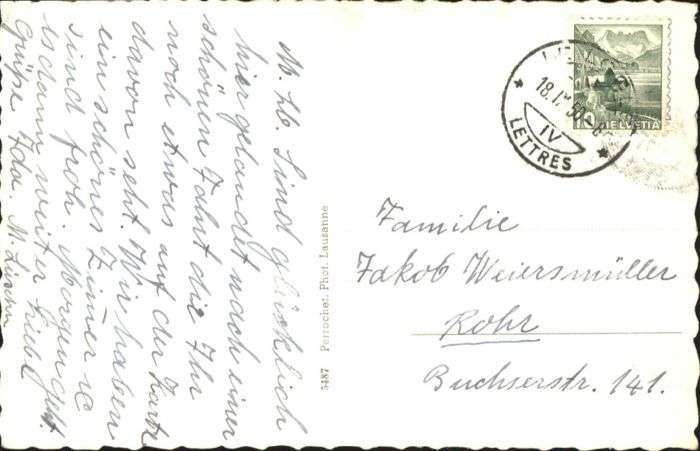 M. Lb. Sind glücklich
hier gelandet nach einer
schönen Fahrt die Ihr
noch etwas auf der Karte
davon seht. Wir haben
ein schönes Zimmer &
sind froh. Morgen geht
es dann weiter. Liebe
Grüße Ida M.
5487 Perrochet. Phot. Lausanne
18. 50
IV
LETTRES
10 HELVETIA
Familie
Jakob Weiersmüller
Rohr
Buchserstr. 141.